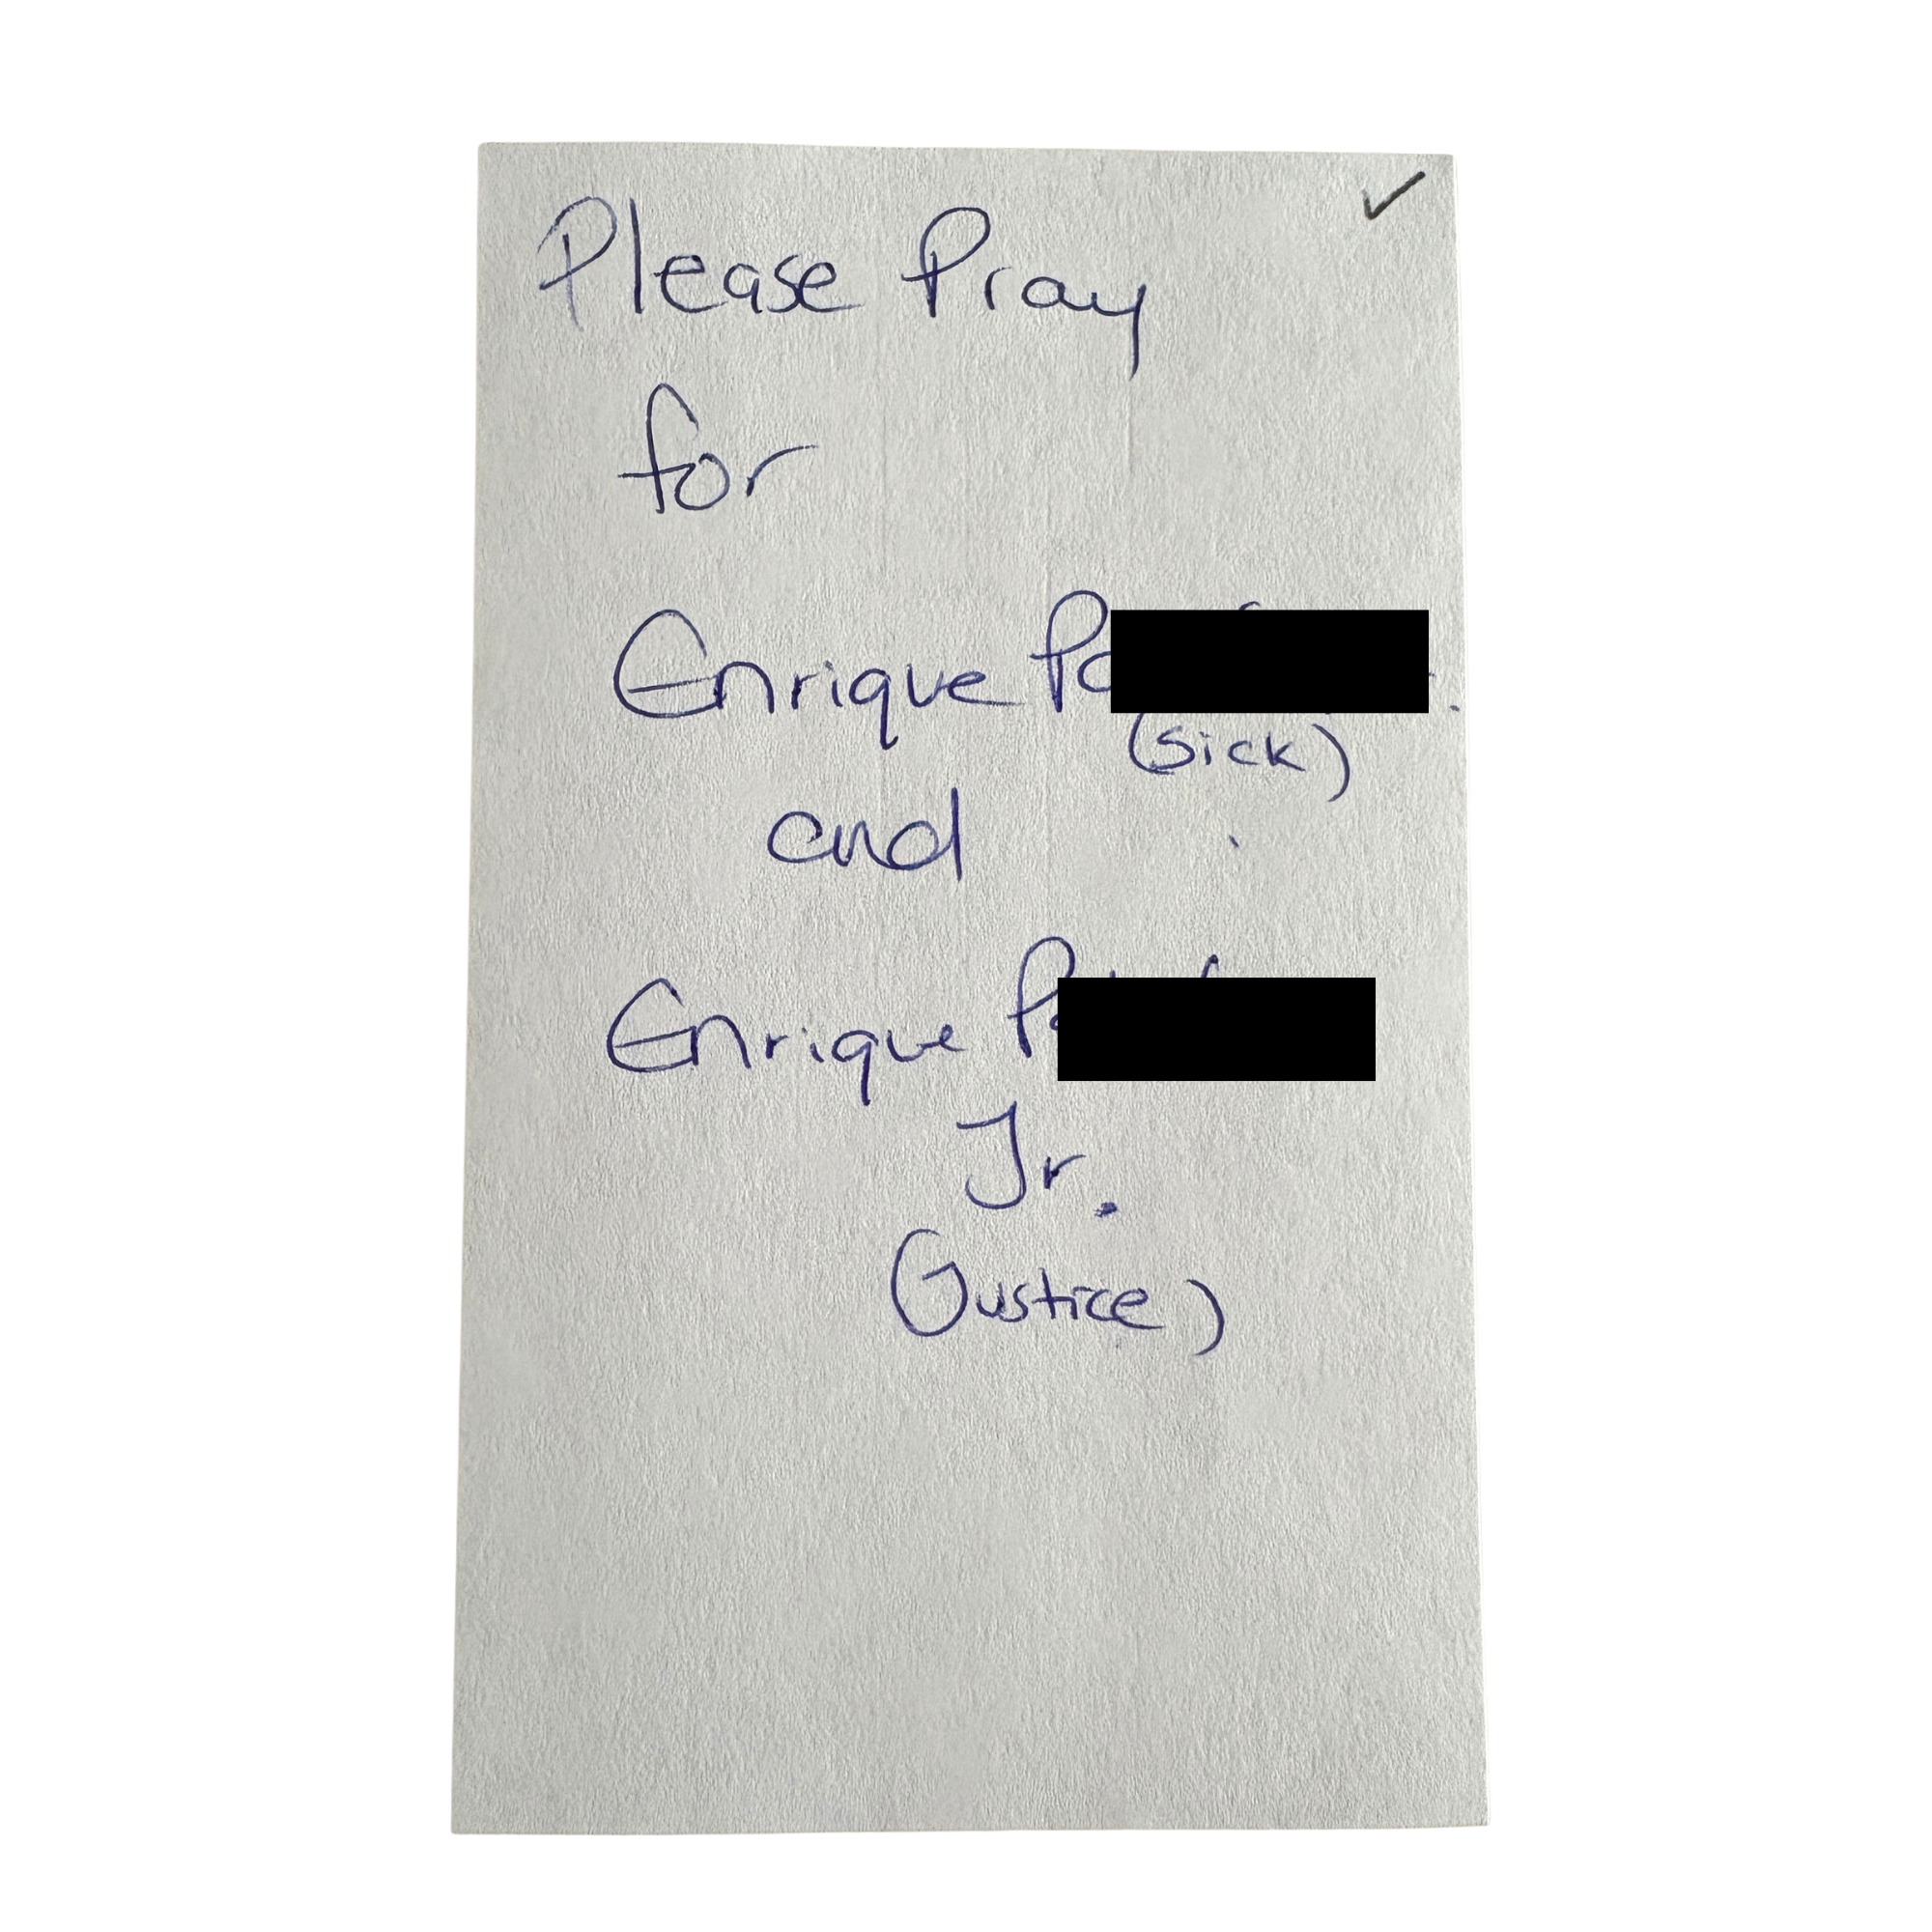 Please Pray
for
Enrique
(sick)
and
Enrique
Jr.
(Justice)